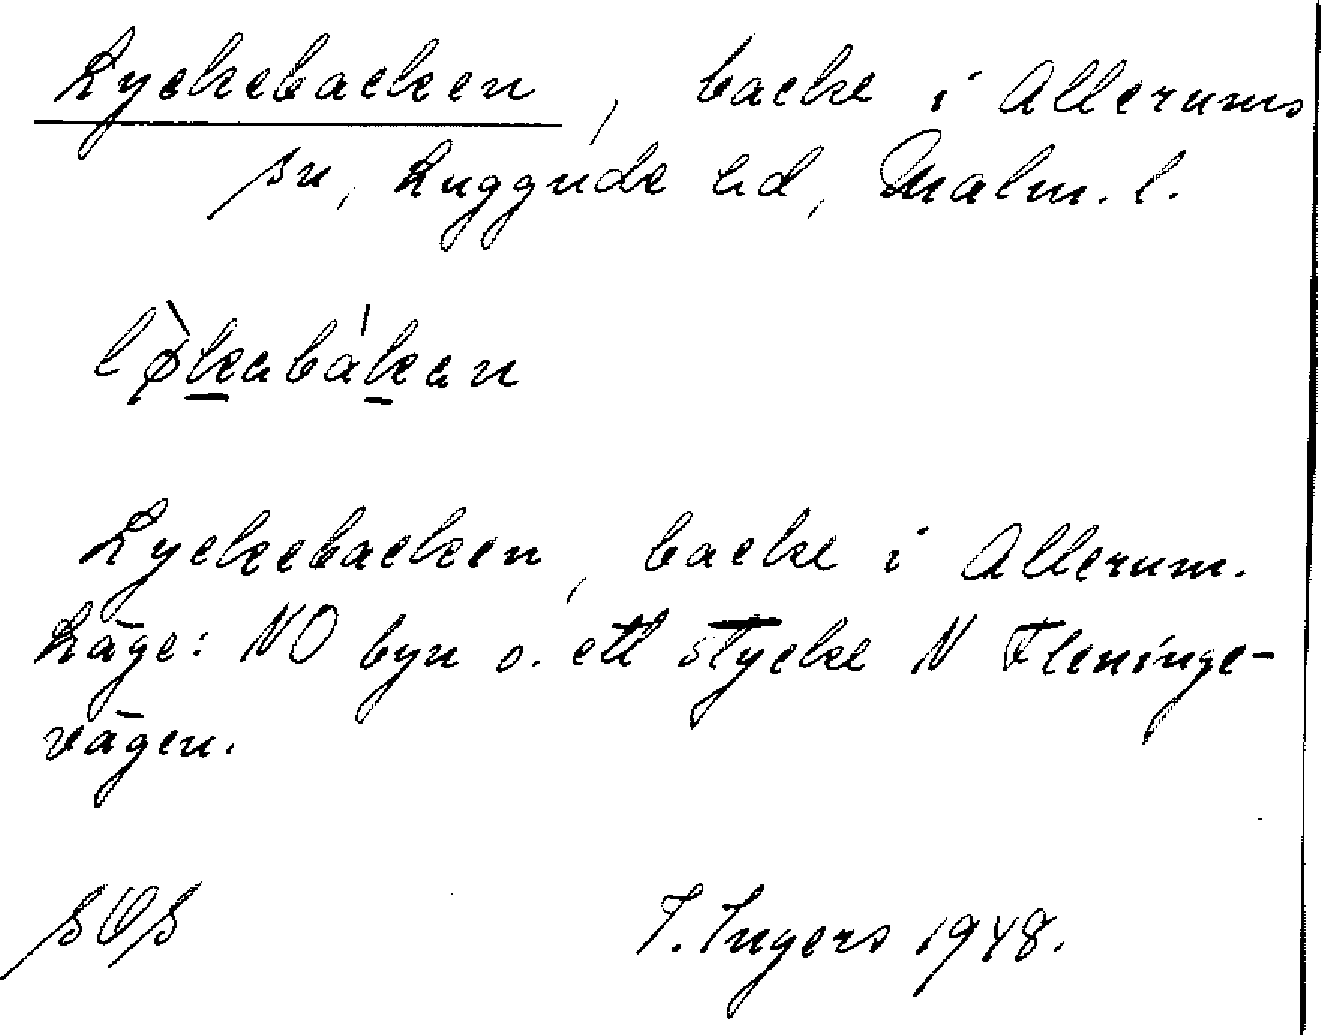 Lyckebacken, backe i Allerums
sn, Luggude hd, Malm. l.
lø̀kabákan
Lyckebacken, backe i Allerum.
Läge: NO byn o. ett stycke N Fleninge-
vägen.
I. Ingers 1948.